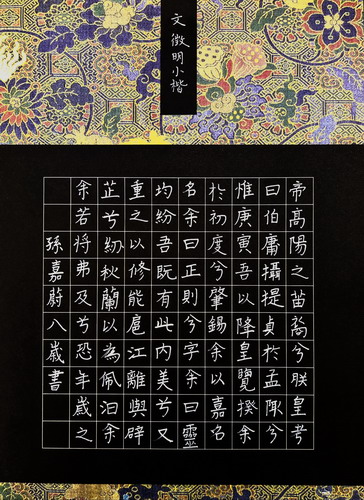 文徵明小楷
帝高陽之苗裔兮朕皇考
曰伯庸攝提貞於孟陬兮
惟庚寅吾以降皇覽揆余
於初度兮肇錫余以嘉名
名余曰正則兮字余曰靈
均紛吾既有此内美兮又
重之以修能扈江離與辟
芷兮紉秋蘭以為佩汩余
余若將弗及兮恐年歲之
孫嘉蔚八歲書